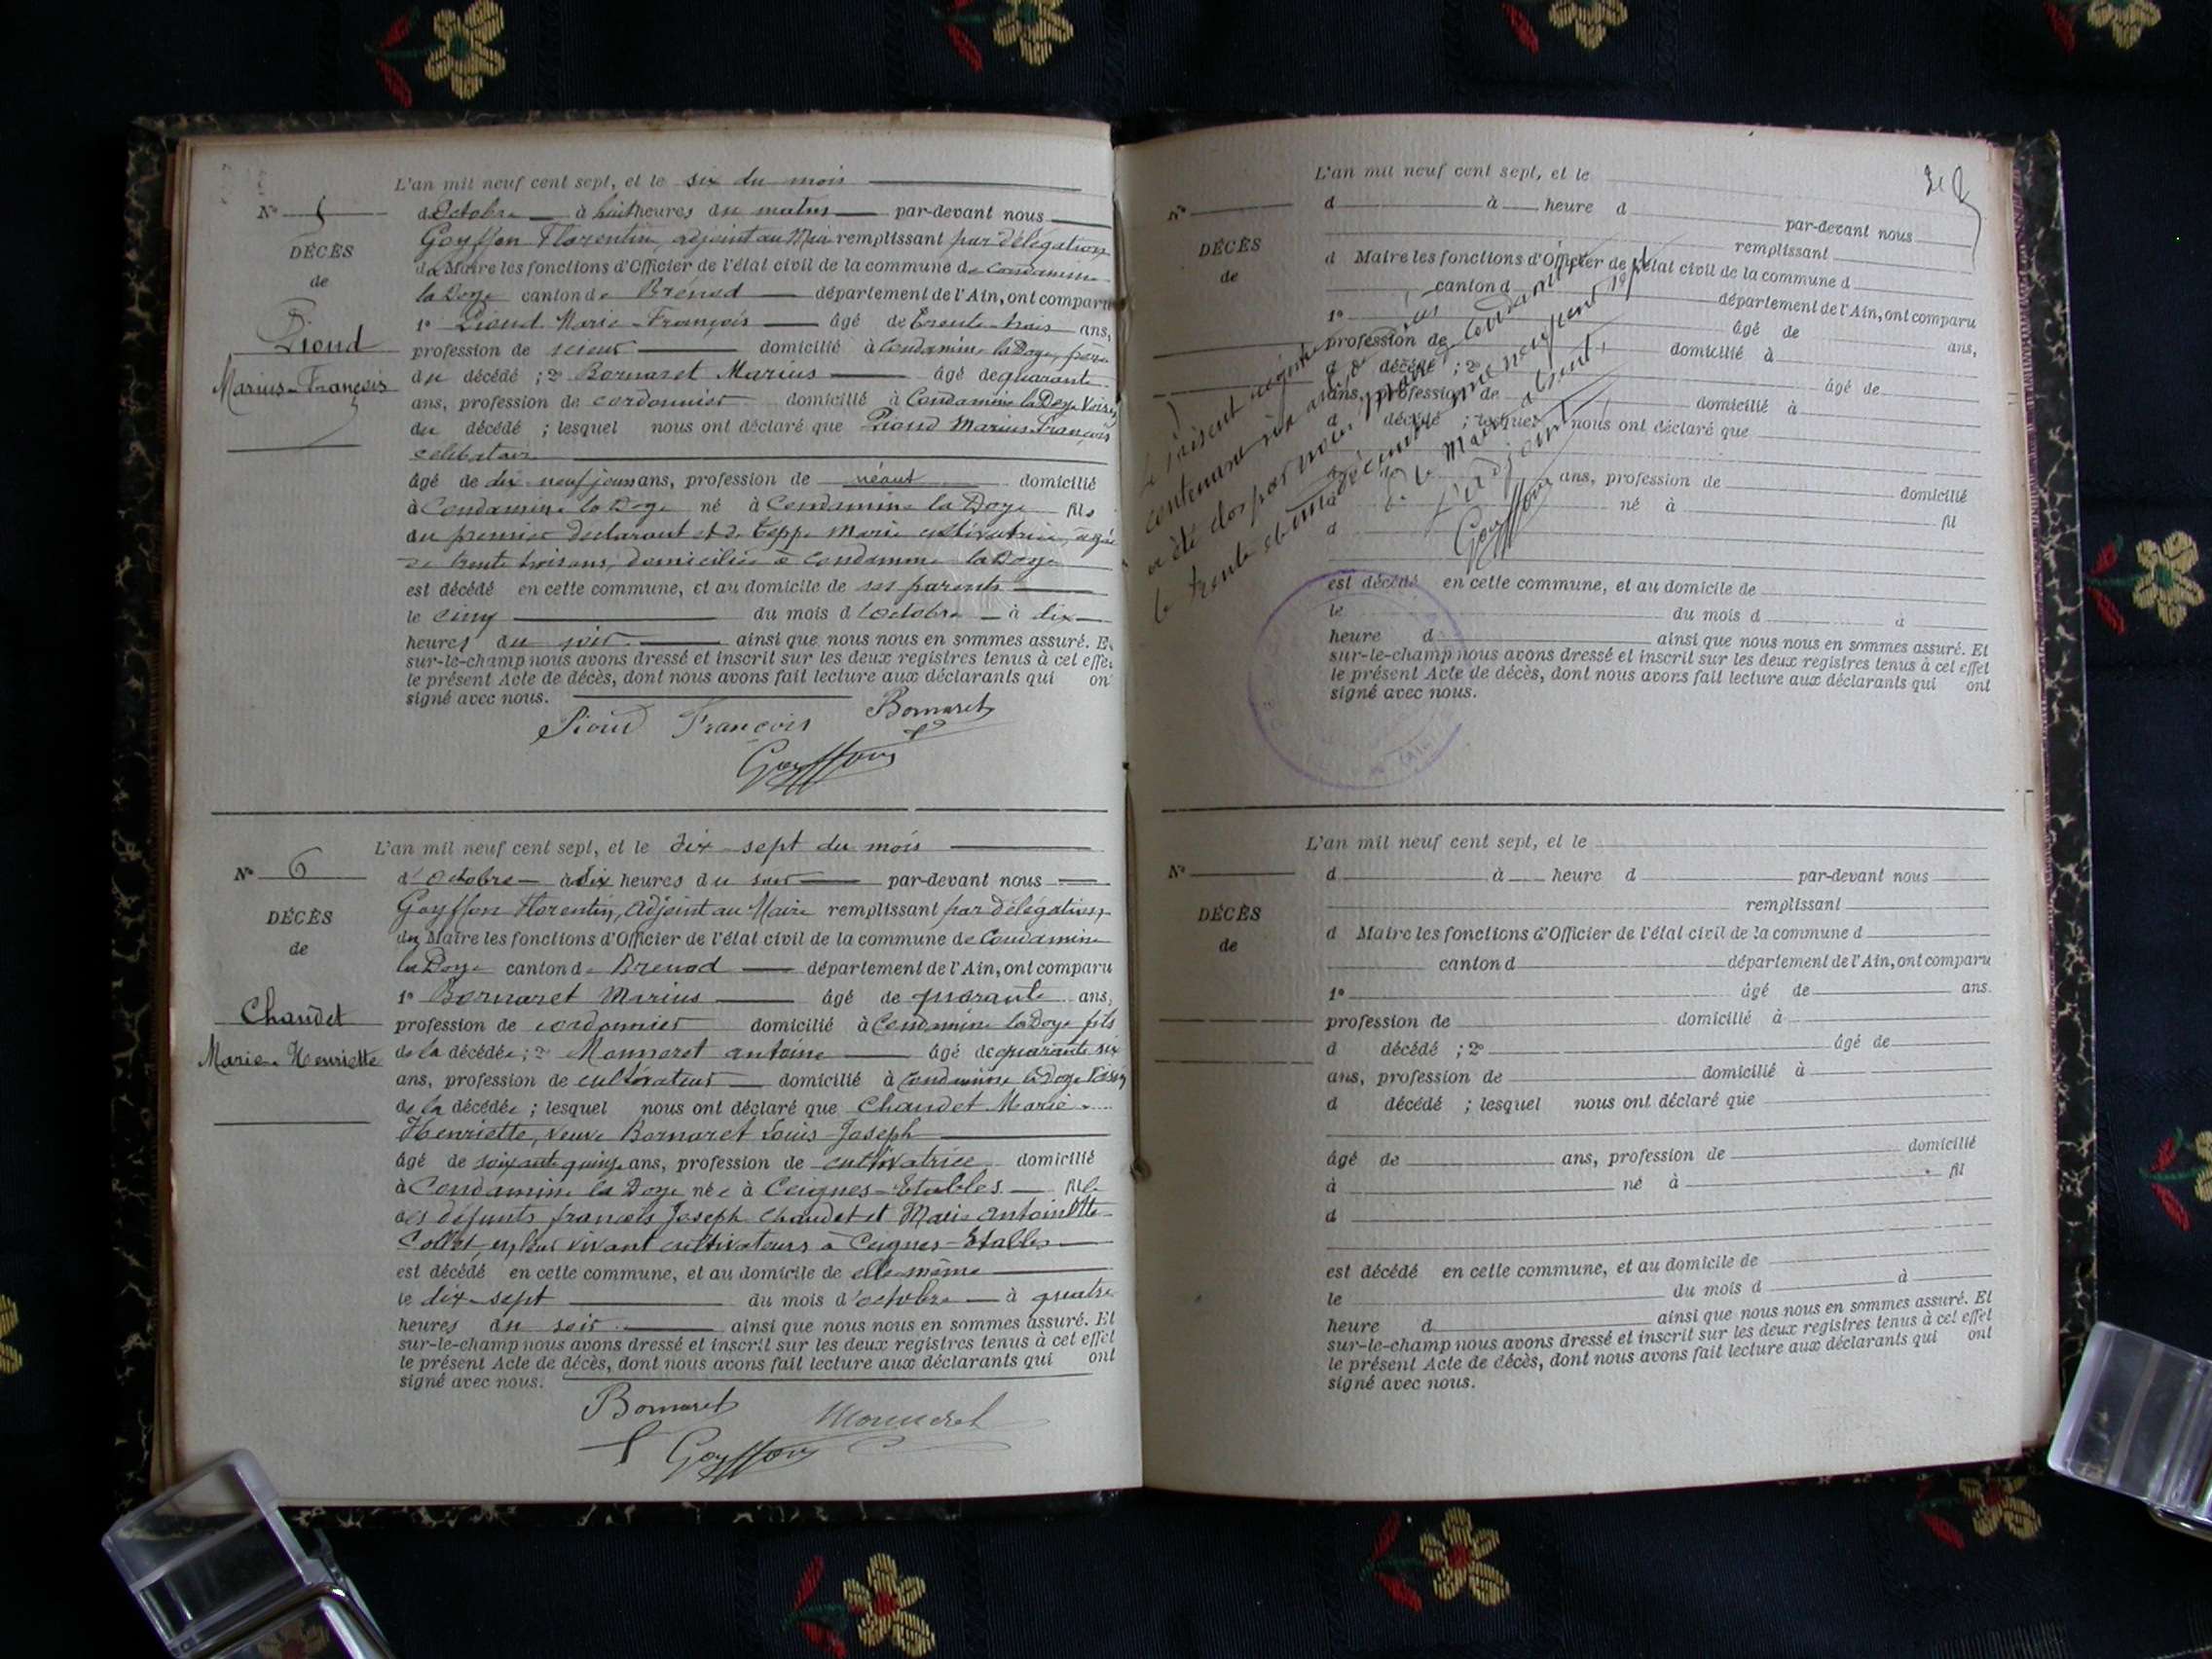 L'an mil neuf cent sept, et le six du mois
N° 5
d'Octobre à huit heures du matin par-devant nous
DÉCÈS
Goyffon Florentin, adjoint au Maire remplissant par délégation
du Maire les fonctions d'Officier de l'état civil de la commune de Condamine
de
la Doye canton de Brénod département de l'Ain, ont comparu
1° Pioud Marie-François âgé de trente-trois ans,
Pioud
profession de scieur domicilié à Condamine la Doye, père
Marius-François
du décédé ; 2° Bornaret Marius âgé de quarante
ans, profession de cordonnier domicilié à Condamine la Doye Voisin
du décédé ; lesquel nous ont déclaré que Pioud Marius François
célibataire
âgé de dix neuf jours ans, profession de néant domicilié
à Condamine la Doye né à Condamine la Doye fils
du premier déclarant et de Tepp Marie cultivatrice, agée
de trente trois ans, domiciliée à Condamine la Doye
est décédé en cette commune, et au domicile de ses parents
le cinq du mois d'octobre à dix
heures du soir ainsi que nous nous en sommes assuré. Et
sur-le-champ nous avons dressé et inscrit sur les deux registres tenus à cet effet
le présent Acte de décès, dont nous avons fait lecture aux déclarants qui ont
signé avec nous.
Pioud François Bornaret
Goyffon
L'an mil neuf cent sept, et le dix-sept du mois
N° 6
d'Octobre à six heures du soir par-devant nous
DÉCÈS
Goyffon Florentin, Adjoint au Maire remplissant par délégation
du Maire les fonctions d'Officier de l'état civil de la commune de Condamine
de
la Doye canton de Brenod département de l'Ain, ont comparu
1° Bornaret Marius âgé de quarante ans,
Chaudet
profession de cordonnier domicilié à Condamine la Doye fils
Marie-Henriette
de la décédée ; 2° Monneret antoine âgé de quarante six
ans, profession de cultivateur domicilié à Condamine la Doye Voisin
de la décédée ; lesquel nous ont déclaré que Chaudet Marie
Henriette, veuve Bornaret Louis Joseph
âgé de soixante quinze ans, profession de cultivatrice domicilié
à Condamine la Doye née à Ceignes-Etables fille
des défunts françois Joseph Chaudet et Marie Antoinette
Collet en leur vivant cultivateurs à Ceignes-Etables
est décédé en cette commune, et au domicile de elle même
le dix-sept du mois d'octobre à quatre
heures du soir ainsi que nous nous en sommes assuré. Et
sur-le-champ nous avons dressé et inscrit sur les deux registres tenus à cet effet
le présent Acte de décès, dont nous avons fait lecture aux déclarants qui ont
signé avec nous.
Bornaret Monneret
Goyffon
L'an mil neuf cent sept, et le
N°
d à heure d par-devant nous
DÉCÈS
remplissant
d Maire les fonctions d'Officier de l'état civil de la commune d
de
canton d département de l'Ain, ont comparu
1° âgé de ans,
profession de domicilié à
d décédé ; 2° âgé de
ans, profession de domicilié à
d décédé ; lesquel nous ont déclaré que
ans, profession de domicilié
né à fil
d
Le présent registre
contenant six actes de
a été clos par nous
le trente et un décembre mil neuf cent sept
P. le Maire absent,
L'adjoint
Goyffon
est décédé en cette commune, et au domicile de
le du mois d à
heure d ainsi que nous nous en sommes assuré. Et
sur-le-champ nous avons dressé et inscrit sur les deux registres tenus à cet effet
le présent Acte de décès, dont nous avons fait lecture aux déclarants qui ont
signé avec nous.
L'an mil neuf cent sept, et le
N°
d à heure d par-devant nous
remplissant
DÉCÈS
d Maire les fonctions d'Officier de l'état civil de la commune d
de
canton d département de l'Ain, ont comparu
1° âgé de ans.
profession de domicilié à
d décédé ; 2° âgé de
ans, profession de domicilié à
d décédé ; lesquel nous ont déclaré que
âgé de ans, profession de domicilié
à né à fil
d
est décédé en cette commune, et au domicile de
le du mois d à
heure d ainsi que nous nous en sommes assuré. Et
sur-le-champ nous avons dressé et inscrit sur les deux registres tenus à cet effet
le présent Acte de décès, dont nous avons fait lecture aux déclarants qui ont
signé avec nous.